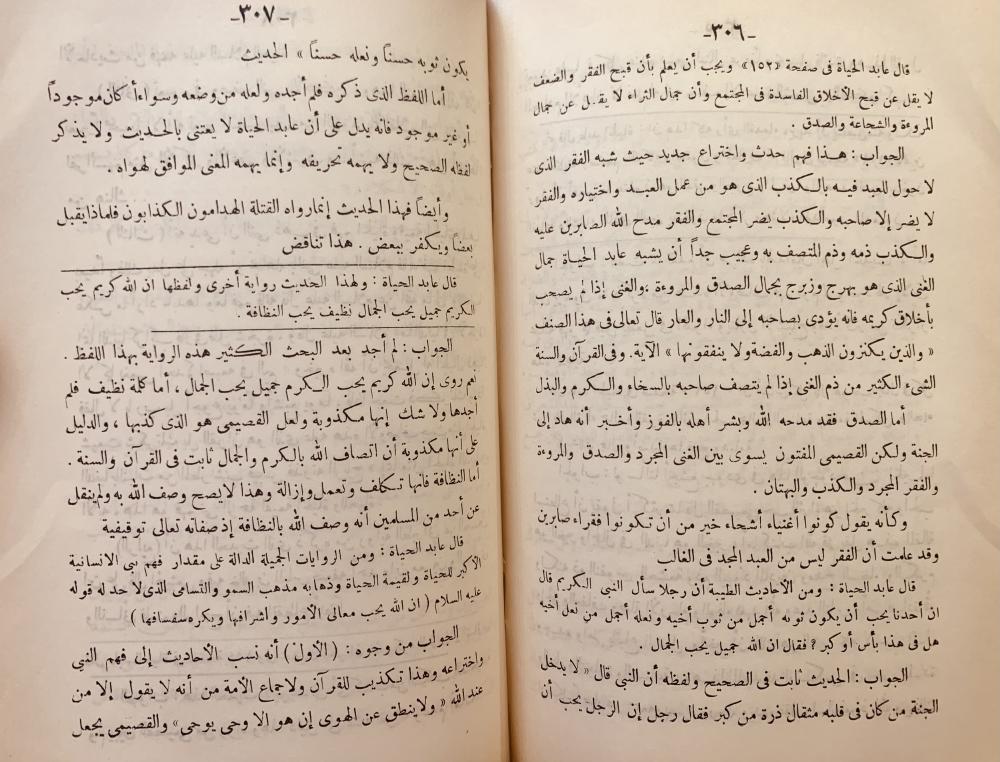 -٣٠٦-
قال عابد الحياة فى صفحة «١٥٢» ويجب أن يعلم بأن قبح الفقر والضعف
لا يقل عن قبح الأخلاق الفاسدة فى المجتمع وأن جمال الثراء لا يقل عن جمال
المروءة والشجاعة والصدق .
الجواب : هذا فهم حدث واختراع جديد حيث شبه الفقر الذى
لا حول للعبد فيه بالكذب الذى هو من عمل العبد واختياره والفقر
لا يضر إلا صاحبه والكذب يضر المجتمع والفقر مدح الله الصابرين عليه
والكذب ذمه وذم المتصف به وعجيب جداً أن يشبه عابد الحياة جمال
الغنى الذى هو بهرج وزبرج بجمال الصدق والمروءة ،والغنى إذا لم يصحب
بأخلاق كريمه فانه يؤدى بصاحبه إلى النار والعار قال تعالى فى هذا الصنف
« والذين يكنزون الذهب والفضة ولا ينفقونها » الآية. وفى القرآن والسنة
الشىء الكثير من ذم الغنى إذا لم يتصف صاحبه بالسخاء والكرم والبذل
أما الصدق فقد مدحه الله وبشر أهله بالفوز وأخبر أنه هاد إلى
الجنة ولكن القصيمى المفتون يسوى بين الغنى المجرد والصدق والمروءة
والفقر المجرد والكذب والبهتان .
وكأنه يقول كونوا أغنياء أشحاء خير من أن تكونوا فقراء صابرين
وقد علمت أن الفقر ليس من العبد المجد فى الغالب
قال عابد الحياة : ومن الأحاديث الطيبة أن رجلا سأل النبى الكريم قال
ان أحدنا يحب أن يكون ثوبه أجمل من ثوب أخيه ونعله أجمل من نعل أخيه
هل فى هذا بأس أو كبر ? فقال ان الله جميل يحب الجمال .
الجواب : الحديث ثابت فى الصحيح ولفظه أن النبى قال « لا يدخل
الجنة من كان فى قلبه مثقال ذرة من كبر فقال رجل إن الرجل يحب أن
-٣٠٧-
يكون ثوبه حسناً ونعله حسناً » الحديث
أما اللفظ الذى ذكره فلم أجده ولعله من وضعه وسواءاً كان موجوداً
أو غير موجود فانه يدل على أن عابد الحياة لا يعتنى بالحديث ولا يذكر
لفظه الصحيح ولا يهمه تحريفه وإنما يهمه المعنى الموافق لهواه .
وأيضاً فهذا الحديث إنما رواه القتلة الهدامون الكذابون فلماذا يقبل
بعضاً ويكفر ببعض . هذا تناقض
قال عابد الحياة : ولهذا الحديث رواية أخرى ولفظها ان الله كريم يحب
الكريم جميل يحب الجمال نظيف يحب النظافة .
الجواب : لم أجد بعد البحث الكثير هذه الرواية بهذا اللفظ .
نعم روى إن الله كريم يحب الكرم جميل يحب الجمال ، أما كلمة نظيف فلم
أجدها ولا شك إنها مكذوبة ولعل القصيمى هو الذى كذبها ، والدليل
على أنها مكذوبة أن اتصاف الله بالكرم والجمال ثابت فى القرآن والسنة .
أما النظافة فانها تكلف وتعمل وإزالة وهذا لا يصح وصف الله به ولم ينقل
عن أحد من المسلمين أنه وصف الله بالنظافة إذ صفاته تعالى توقيفية
قال عابد الحياة : ومن الروايات الجميلة الدالة على مقدار فهم نبى الانسانية
الأكبر للحياة ولقيمة الحياة وذهابه مذهب السمو والتسامى الذى لا حد له قوله
عليه السلام ( ان الله يحب معالى الأمور وأشرافها ويكره سفسافها )
الجواب من وجوه : ( الأول ) أنه نسب الأحاديث إلى فهم النبي
واختراعه وهذا تكذيب للقرآن ولاجماع الأمة من أنه لا يقول إلا من
عند الله « ولا ينطق عن الهوى إن هو الا وحى يوحى» والقصيمى يجعل